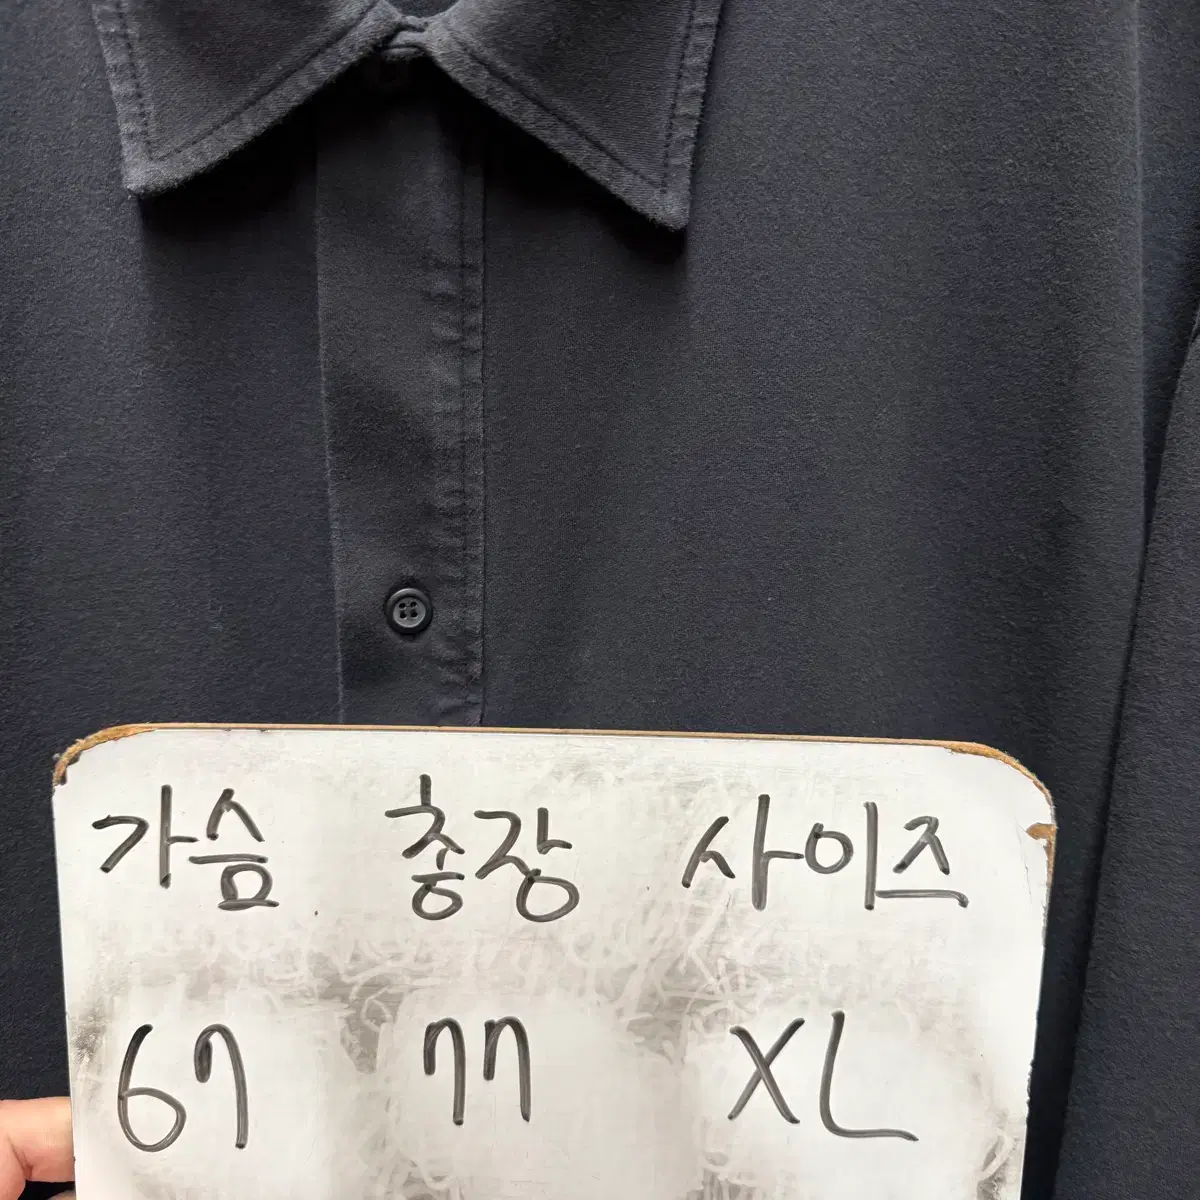 가슴 총장 사이즈
67 77 XL